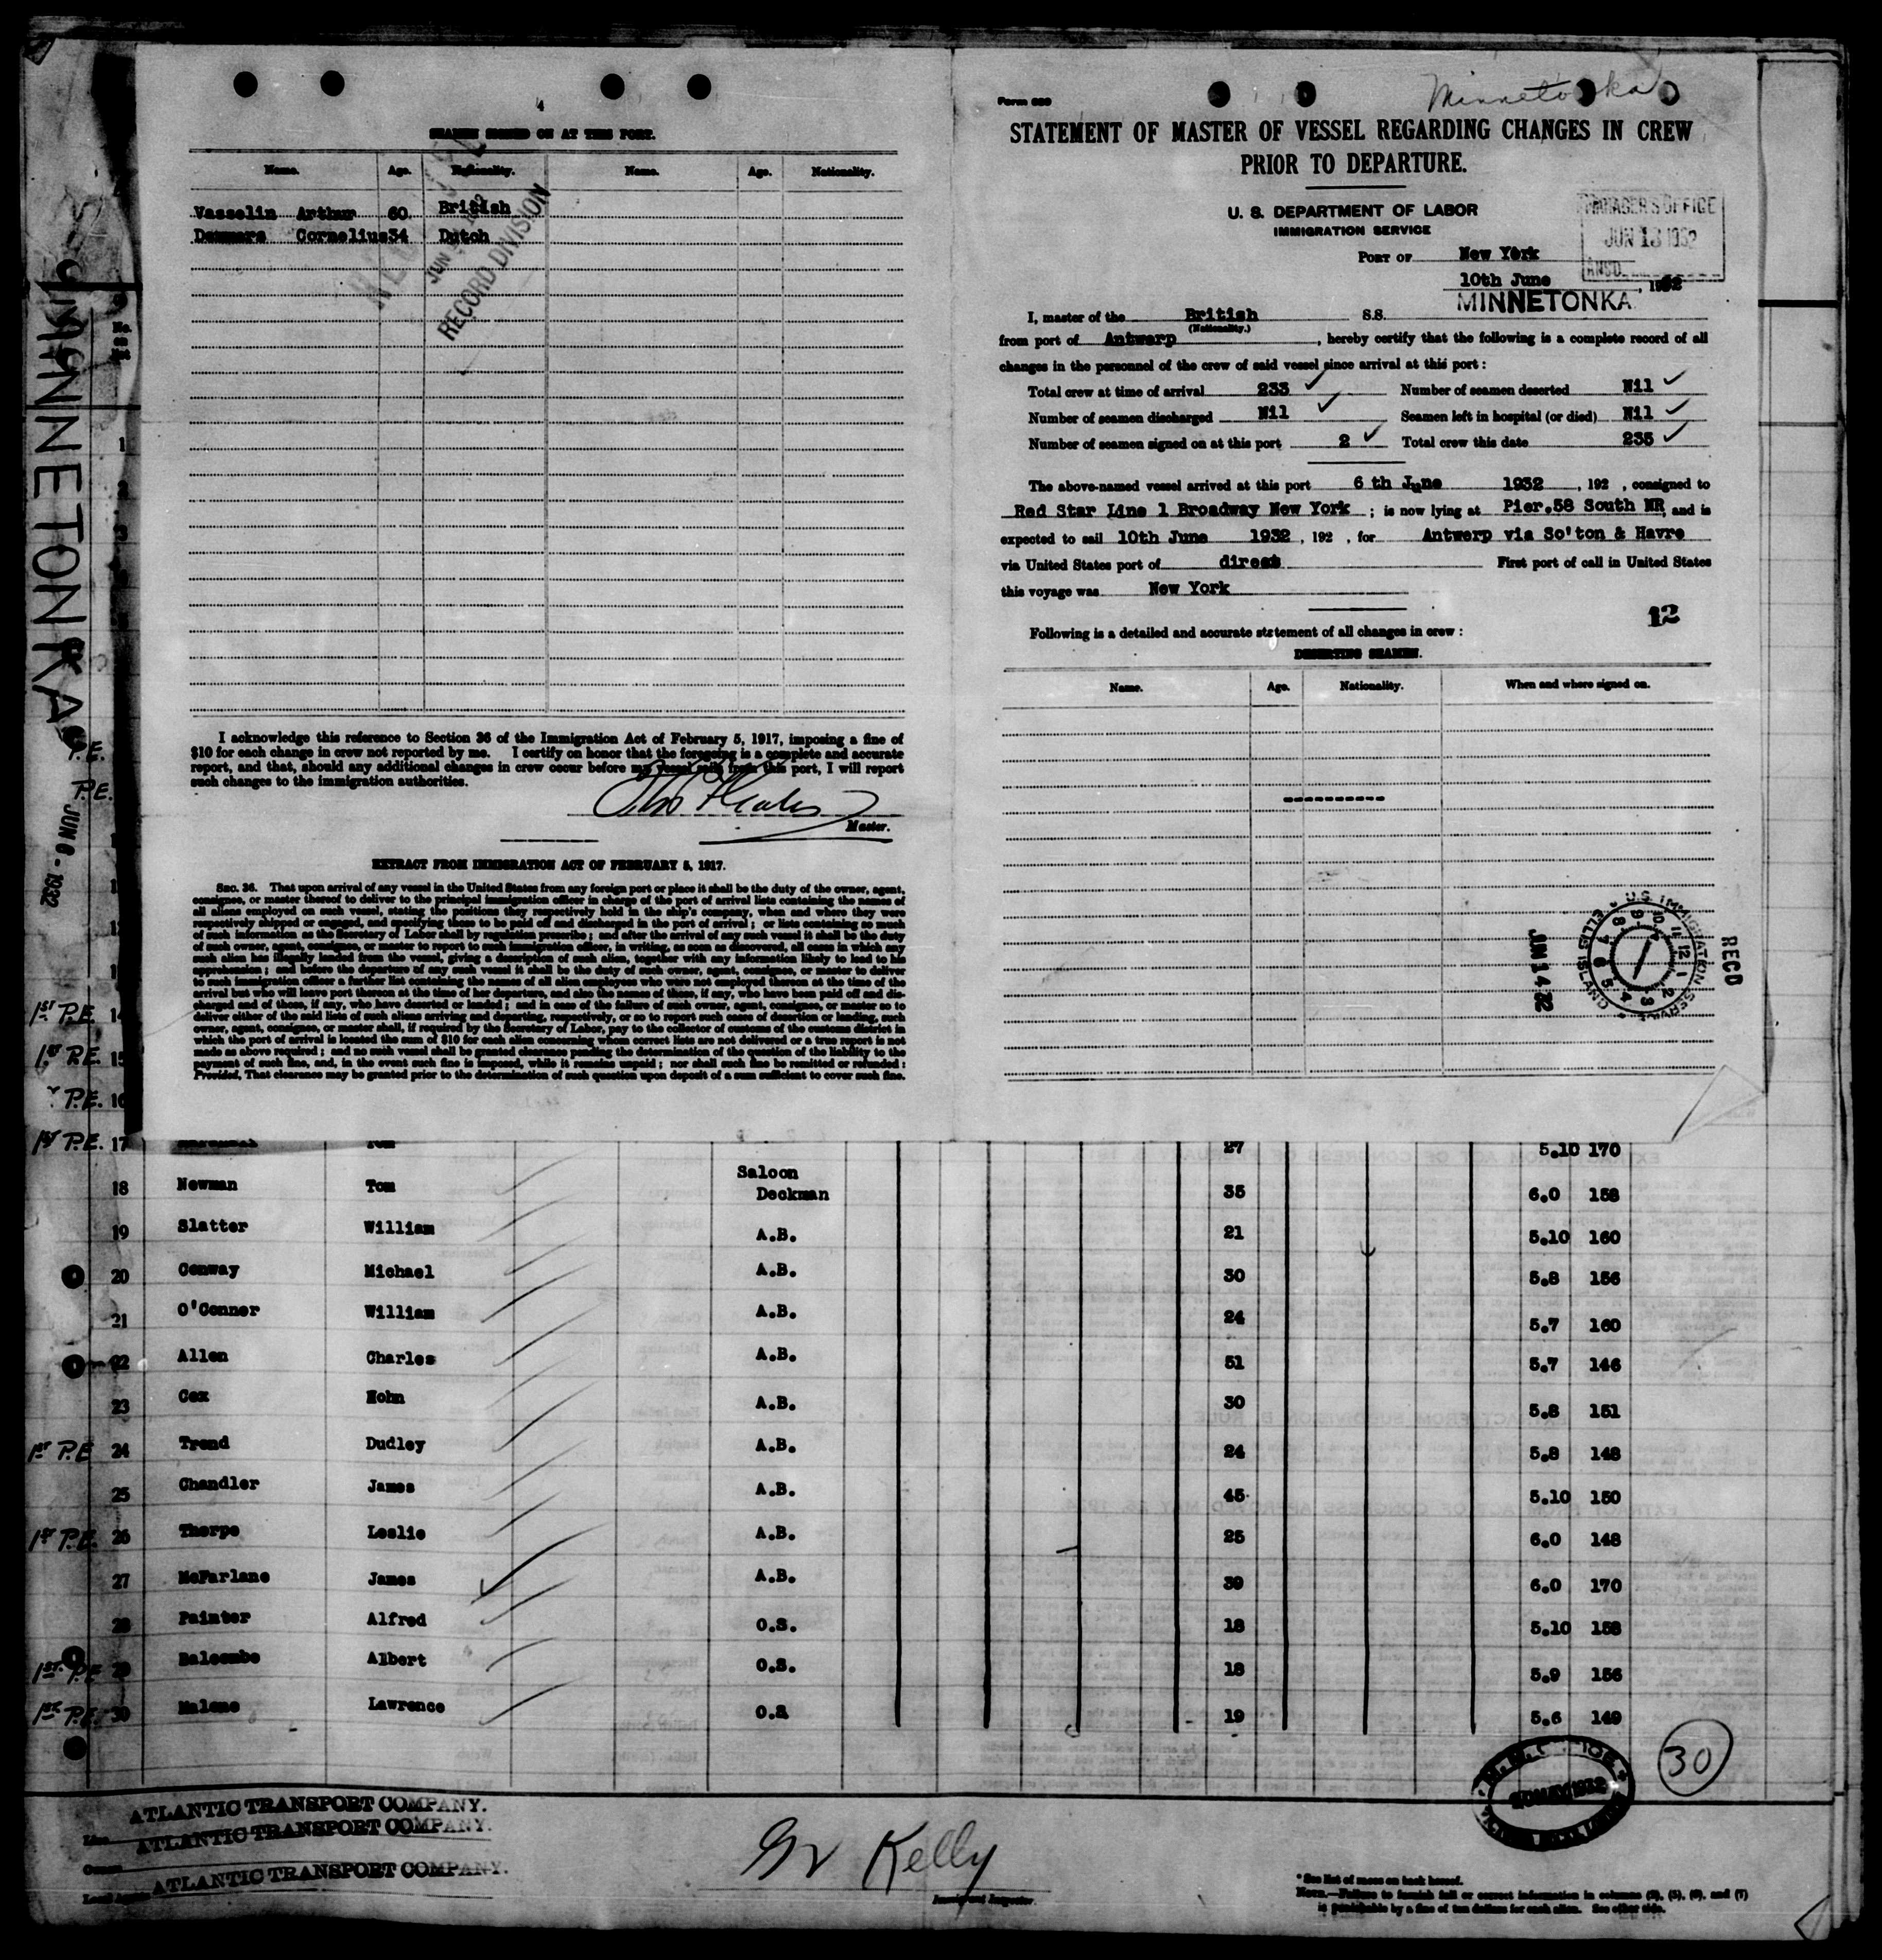 4
SEAMEN SIGNED ON AT THIS PORT.
Name. Age. Nationality. Name. Age. Nationality.
Vasselin Arthur 60. British
Cornelius 34 Dutch
RECORD DIVISION
I acknowledge this reference to Section 36 of the Immigration Act of February 5, 1917, imposing a fine of
$10 for each change in crew not reported by me. I certify on honor that the foregoing is a complete and accurate
report, and that, should any additional changes in crew occur before my vessel sails from this port, I will report
such changes to the immigration authorities.
Master.
EXTRACT FROM IMMIGRATION ACT OF FEBRUARY 5, 1917.
SEC. 36. That upon arrival of any vessel in the United States from any foreign port or place it shall be the duty of the owner, agent,
consignee, or master thereof to deliver to the principal immigration officer in charge of the port of arrival lists containing the names of
all aliens employed on such vessel, stating the positions they respectively hold in the ship's company, when and where they were
respectively shipped or engaged, and specifying those to be paid off and discharged in the port of arrival; or lists containing so much
of such information as the Secretary of Labor shall by regulation prescribe; and after the arrival of any such vessel it shall be the duty
of such owner, agent, consignee, or master to report to such immigration officer, in writing, as soon as discovered, all cases in which any
such alien has illegally landed from the vessel, giving a description of such alien, together with any information likely to lead to his
apprehension; and before the departure of any such vessel it shall be the duty of such owner, agent, consignee, or master to deliver
to such immigration officer a further list containing the names of all alien employees who were not employed thereon at the time of the
arrival but who will leave port thereon at the time of her departure, and also the names of those, if any, who have been paid off and dis-
charged and of those, if any, who have deserted or landed; and in case of the failure of such owner, agent, consignee, or master so to
deliver either of the said lists of such aliens arriving and departing, respectively, or so to report such cases of desertion or landing, such
owner, agent, consignee, or master shall, if required by the Secretary of Labor, pay to the collector of customs of the customs district in
which the port of arrival is located the sum of $10 for each alien concerning whom correct lists are not delivered or a true report is not
made as above required; and no such vessel shall be granted clearance pending the determination of the question of the liability to the
payment of such fine, and, in the event such fine is imposed, while it remains unpaid; nor shall such fine be remitted or refunded:
Provided, That clearance may be granted prior to the determination of such question upon deposit of a sum sufficient to cover such fine.
Form 689
Minnetonka
STATEMENT OF MASTER OF VESSEL REGARDING CHANGES IN CREW
PRIOR TO DEPARTURE.
U. S. DEPARTMENT OF LABOR
IMMIGRATION SERVICE
MANAGER'S OFFICE
JUN 13 1932
ANSD.
PORT OF New York
10th June, 1932
I, master of the British S.S. MINNETONKA
(Nationality.)
from port of Antwerp, hereby certify that the following is a complete record of all
changes in the personnel of the crew of said vessel since arrival at this port:
Total crew at time of arrival 233 Number of seamen deserted Nil
Number of seamen discharged Nil Seamen left in hospital (or died) Nil
Number of seamen signed on at this port 2 Total crew this date 235
The above-named vessel arrived at this port 6 th June 1932, 192 , consigned to
Red Star Line 1 Broadway New York ; is now lying at Pier.58 South NR and is
expected to sail 10th June 1932, 192 , for Antwerp via So'ton & Havre
via United States port of direct First port of call in United States
this voyage was New York
12
Following is a detailed and accurate statement of all changes in crew:
DESERTING SEAMEN.
Name. Age. Nationality. When and where signed on.
----------
RECD
U.S. IMMIGRATION SERVICE
ELLIS ISLAND
JUN 14 32
MINNETONKA
No. on list
1
2
3
P.E.
P.E.
JUN 6 - 1932
1st P.E. 14
1st P.E. 15
P.E. 16
1st P.E. 17 Tom 27 5.10 170
18 Newman Tom Saloon Deckman 35 6.0 158
19 Slatter William A.B. 21 5.10 160
20 Conway Michael A.B. 30 5.8 156
21 O'Conner William A.B. 24 5.7 160
22 Allen Charles A.B. 51 5.7 146
23 Cox Hohn A.B. 30 5.8 151
1st P.E 24 Trend Dudley A.B. 24 5.8 148
25 Chandler James A.B. 45 5.10 150
1st P.E. 26 Thorpe Leslie A.B. 25 6.0 148
27 McFarlane James A.B. 39 6.0 170
28 Painter Alfred O.S. 18 5.10 158
1st P.E 29 Balcombe Albert O.S. 18 5.9 156
1st P.E. 30 Malone Lawrence O.S 19 5.6 149
30
Line ATLANTIC TRANSPORT COMPANY.
Owners ATLANTIC TRANSPORT COMPANY.
Local Agents ATLANTIC TRANSPORT COMPANY.
Kelly
Immigrant Inspector.
* See list of races on back hereof.
NOTE.—Failure to furnish full or correct information in columns (2), (5), (6), and (7)
is punishable by a fine of ten dollars for each alien. See other side.